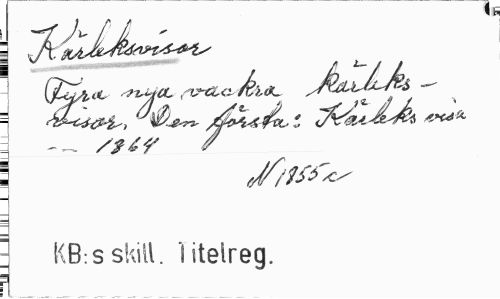 Kärleksvisor
Fyra nya vackra kärleks-
visor. Den första: Kärleks visa
-- 1864
N 1855 c
KB:s skill. Titelreg.